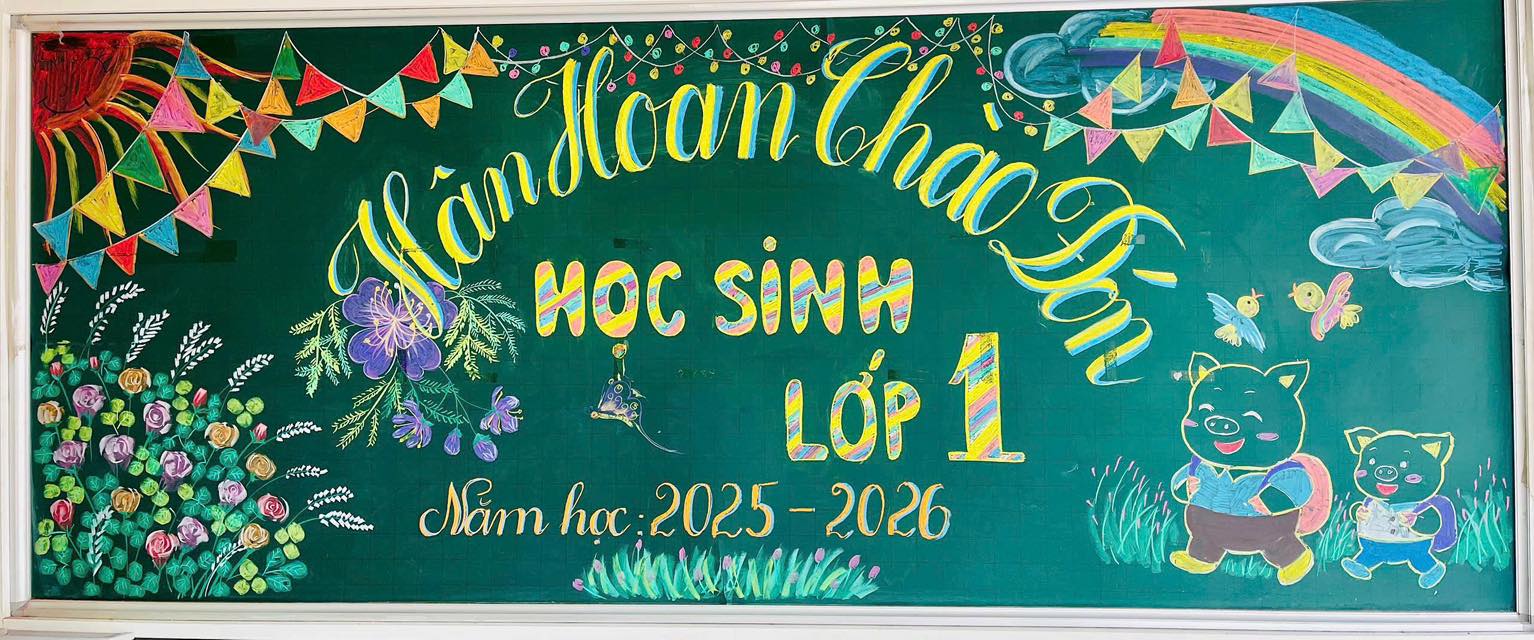 Hân Hoan Chào Đón
HỌC SINH
LỚP 1
Năm học: 2025 - 2026